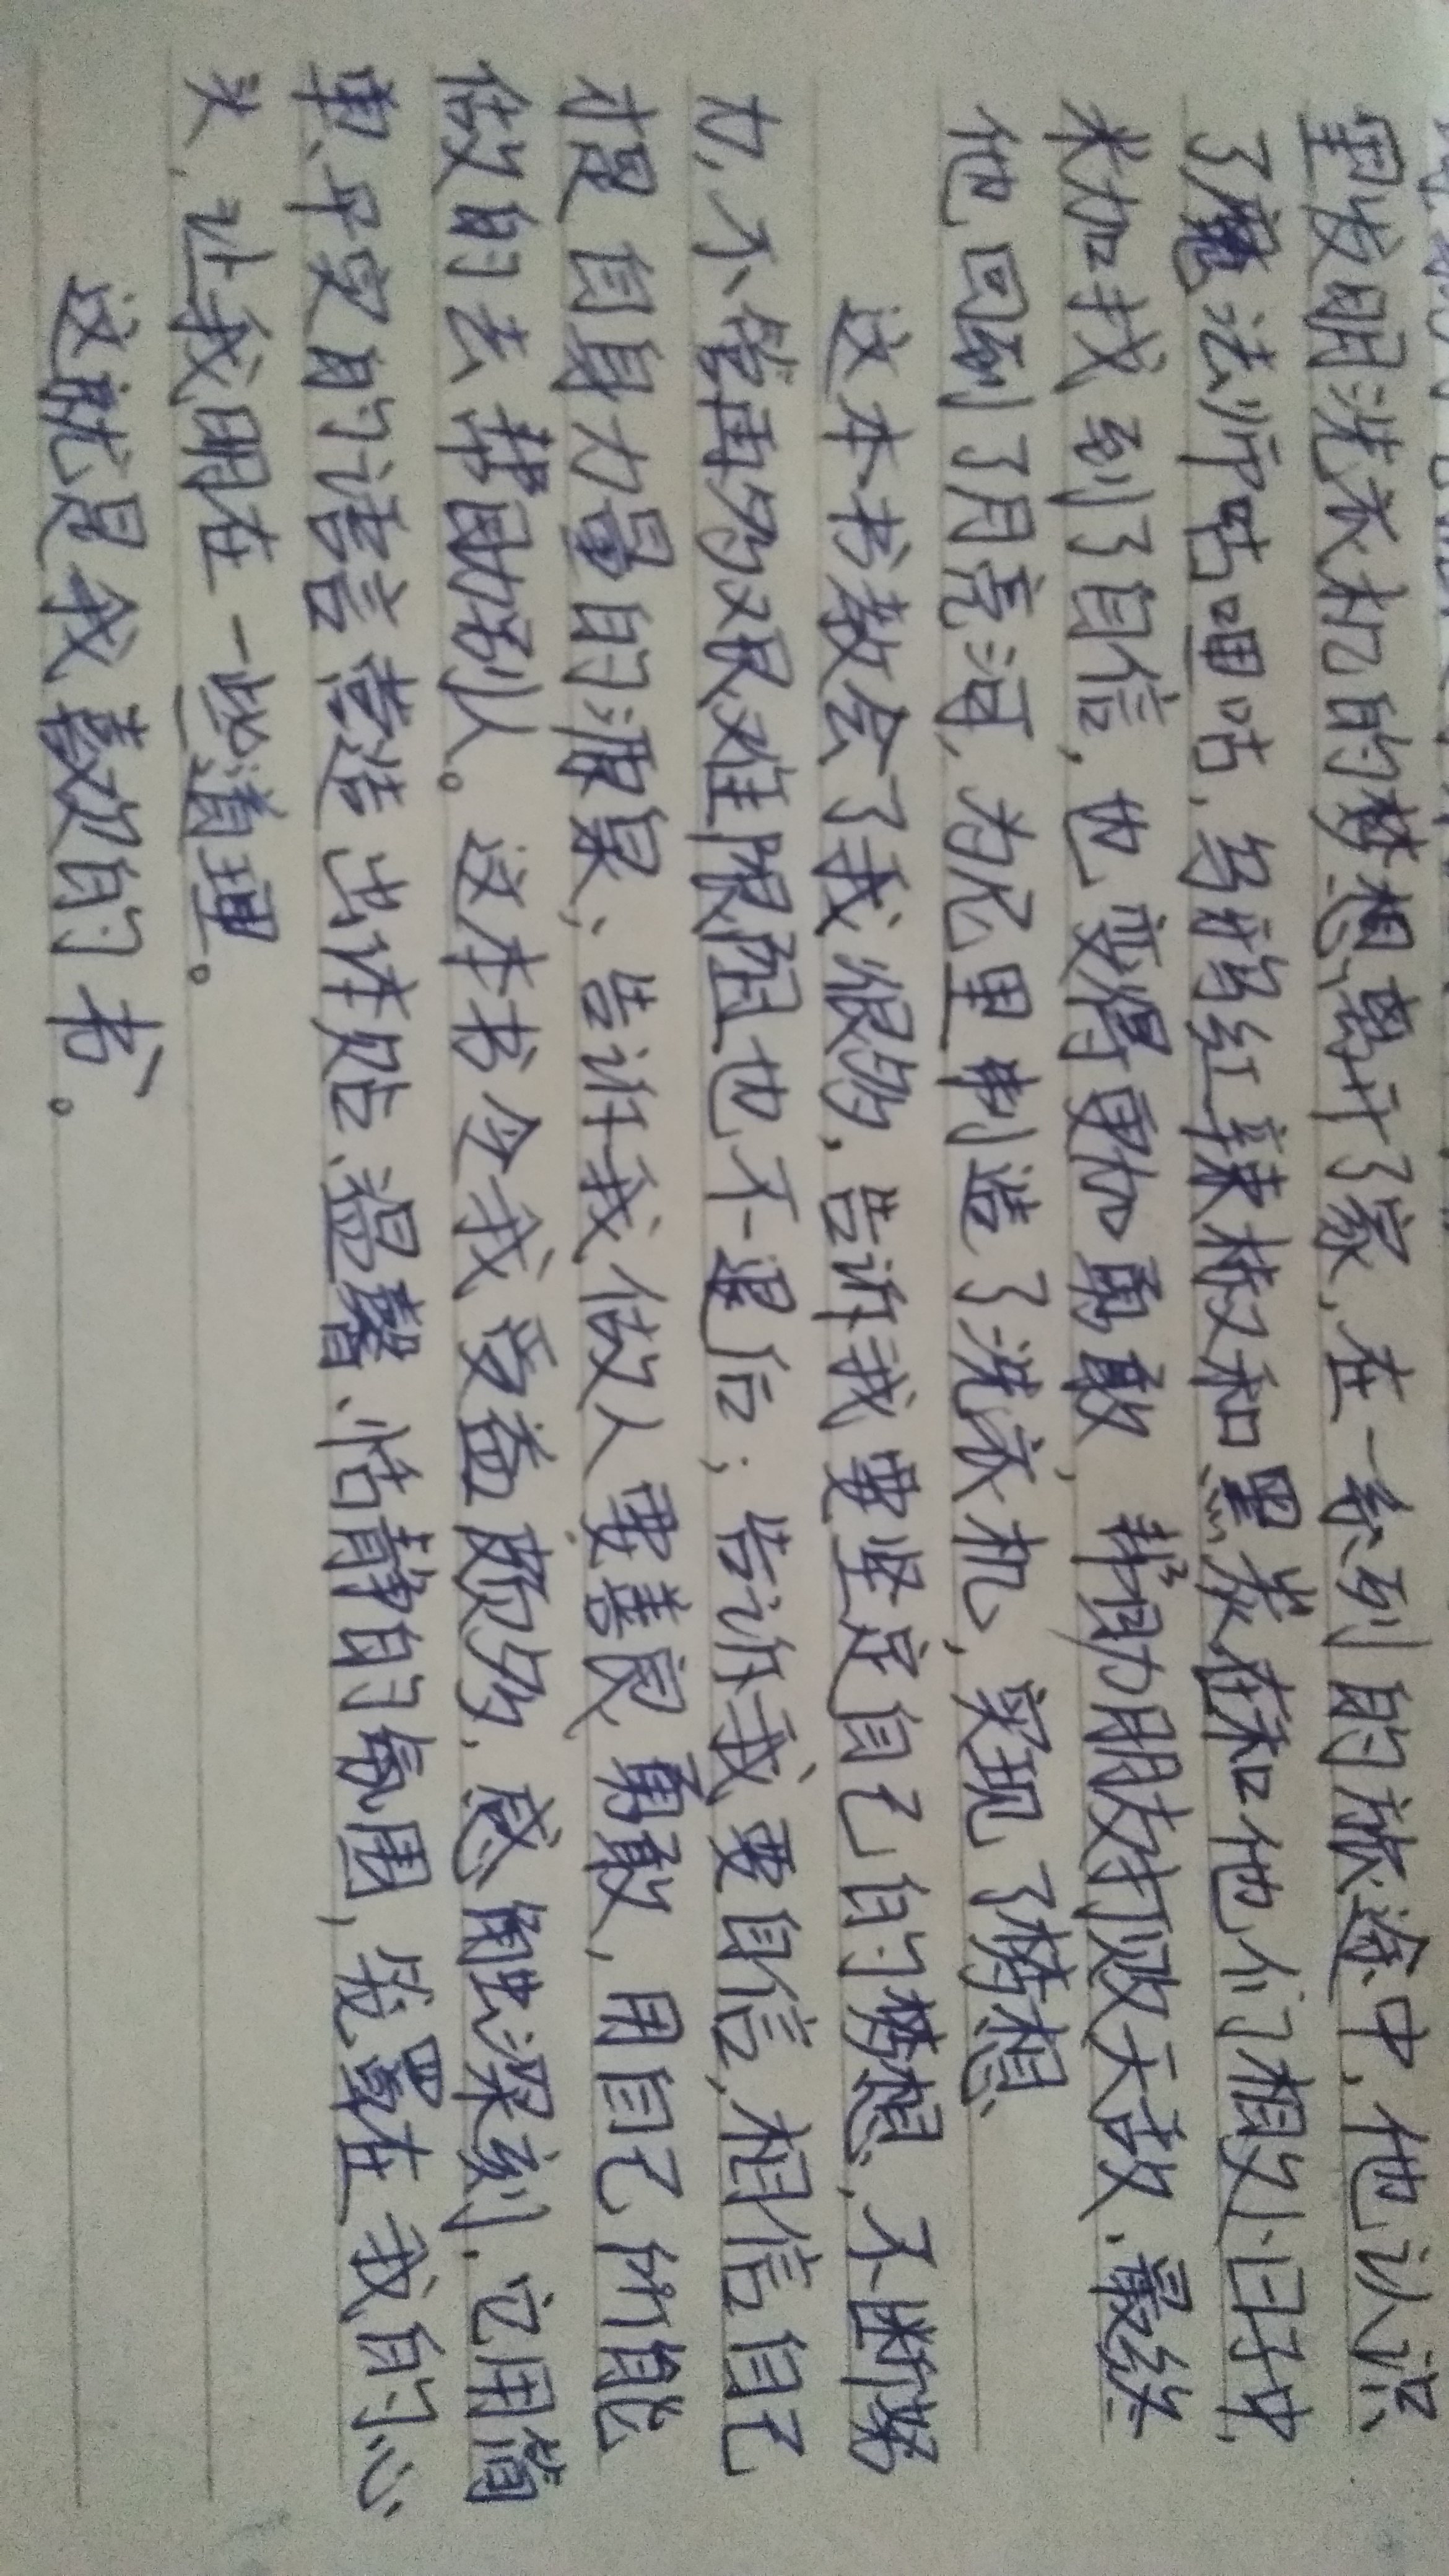 里发明洗衣机的梦想,离开了家,在一系列的旅途中,他认识
了魔法师咕哩咕,乌鸦红辣椒和黑炭,在和他们相处日子中,
米加找到了自信,也变得更加勇敢,帮助朋友打败天敌,最终
他回到了月亮河,为尼里制造了洗衣机,实现了梦想
这本书教会了我很多,告诉我要坚定自己的梦想,不断努
力,不管再多艰难险阻也不退后;告诉我要自信,相信自己
才是自身力量的源泉;告诉我做人要善良、勇敢,用自己所能
做的去帮助别人。这本书令我受益颇多,感触深刻,它用简
单、平实的语言营造出体贴、温馨、恬静的氛围,笼罩在我的心
头,让我明在一些道理。
这就是我喜欢的书。